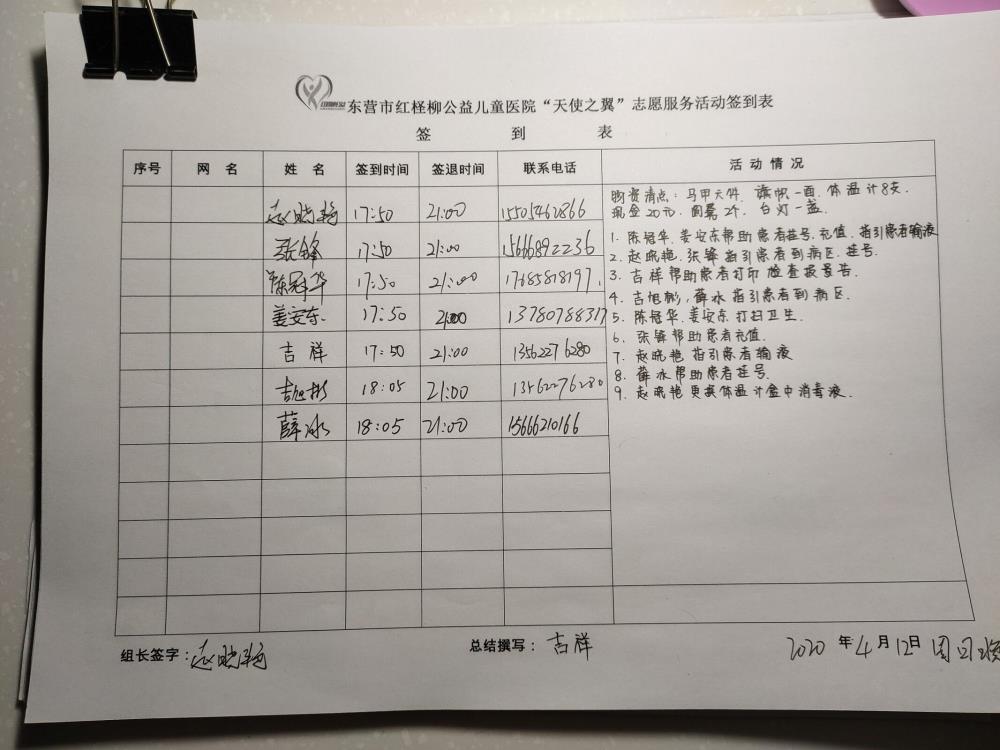 东营市红柽柳公益儿童医院“天使之翼”志愿服务活动签到表
签 到 表
序号 网 名 姓 名 签到时间 签退时间 联系电话 活 动 情 况
赵晓艳 17:50 21:00 15505462866
张锋 17:50 21:00 15666892236
陈冠华 17:50 21:00 17685818197
姜安东 17:50 21:00 13780788317
吉祥 17:50 21:00 13562276280
吉旭彬 18:05 21:00 13562276280
薛冰 18:05 21:00 15666210166
物资清点:马甲六件.旗帜一面.体温计8支.
现金20元.圆凳2个.台灯一盏.
1. 陈冠华.姜安东帮助患者挂号.充值.指引患者输液
2. 赵晓艳.张锋指引患者到病区.挂号.
3. 吉祥帮助患者打印检查报告.
4. 吉旭彬,薛冰指引患者到病区.
5. 陈冠华.姜安东打扫卫生.
6. 张锋帮助患者充值.
7. 赵晓艳指引患者输液
8. 薛冰帮助患者挂号.
9. 赵晓艳更换体温计盒中消毒液.
组长签字:赵晓艳 总结撰写:吉祥 2020年4月12日周日晚